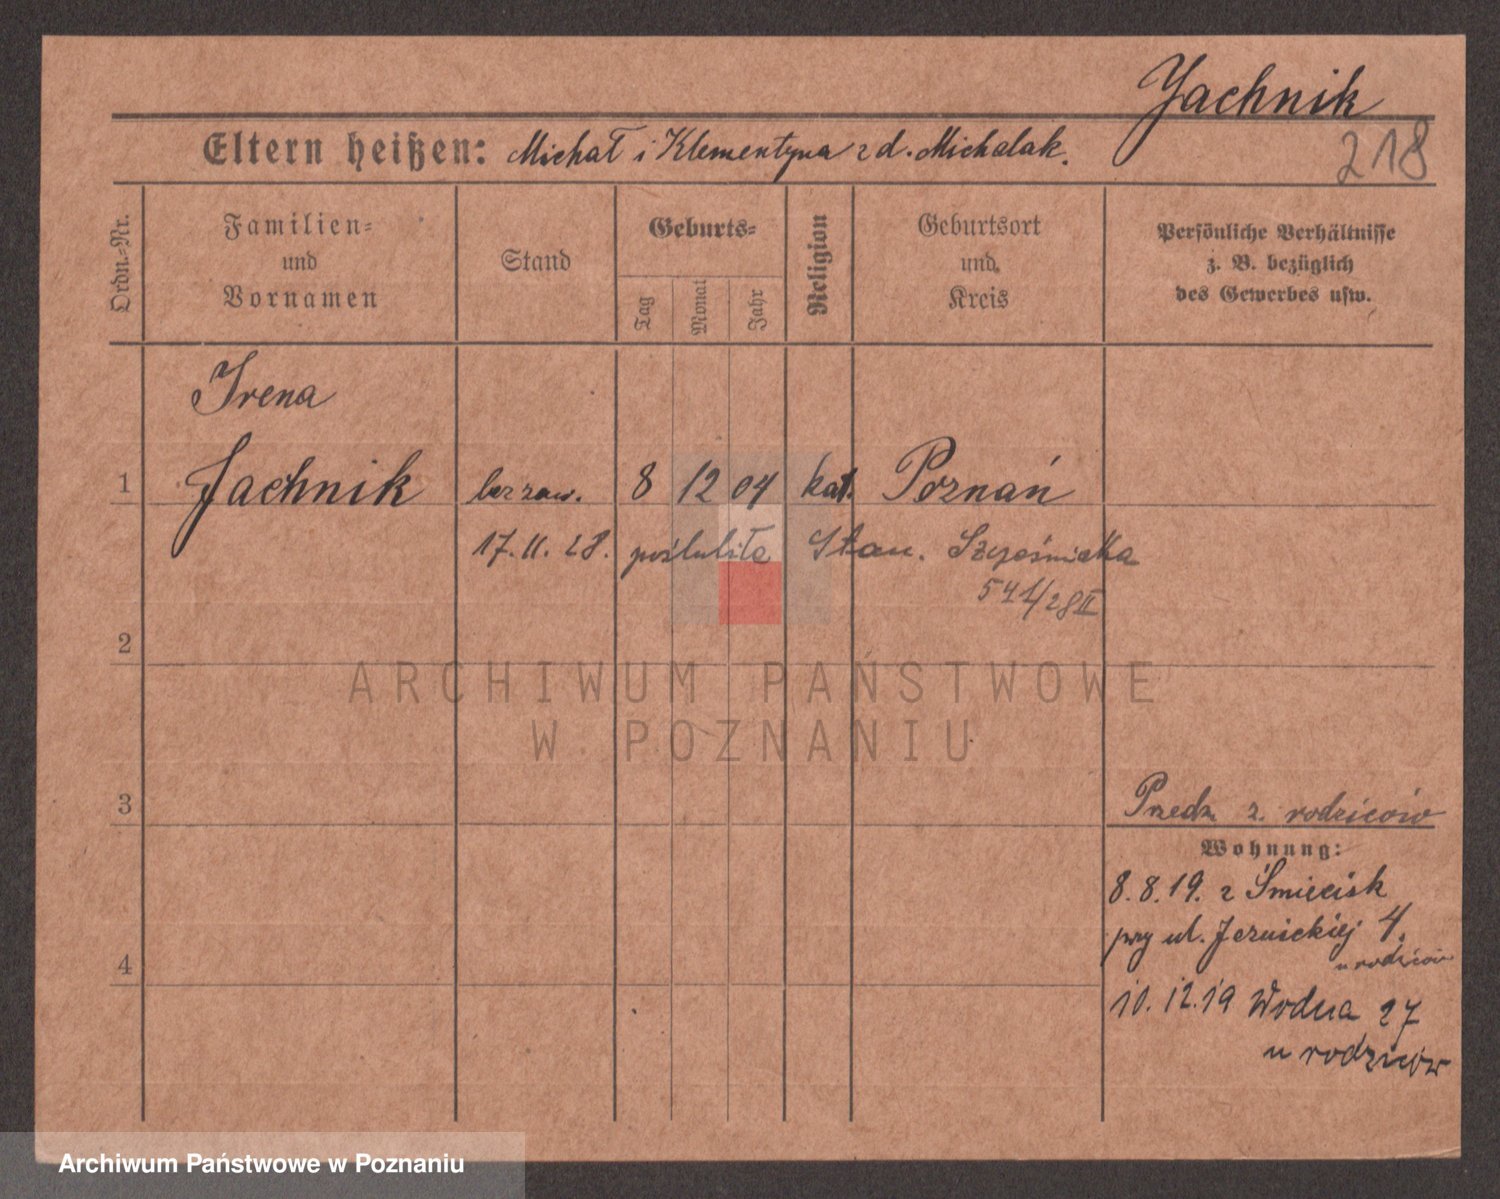 Jachnik
218
Eltern heißen: Michał i Klementyna z d. Michalak.
Ordn.-Nr.
Familien-
und
Vornamen
Stand
Geburts-
Tag
Monat
Jahr
Religion
Geburtsort
und
Kreis
Persönliche Verhältnisse
z. B. bezüglich
des Gewerbes usw.
Irena
1 Jachnik bez zaw. 8 12 04 kat. Poznań
17.11.28. poślubiła Stan.
541/28 II
2
ARCHIWUM PAŃSTWOWE
W POZNANIU
3
Przedm z. rodziców
Wohnung:
8.8.19. z Śmiecisk
przy ul. 4.
u rodziców
4
10.12.19 Wodna 27
u rodziców
Archiwum Państwowe w Poznaniu